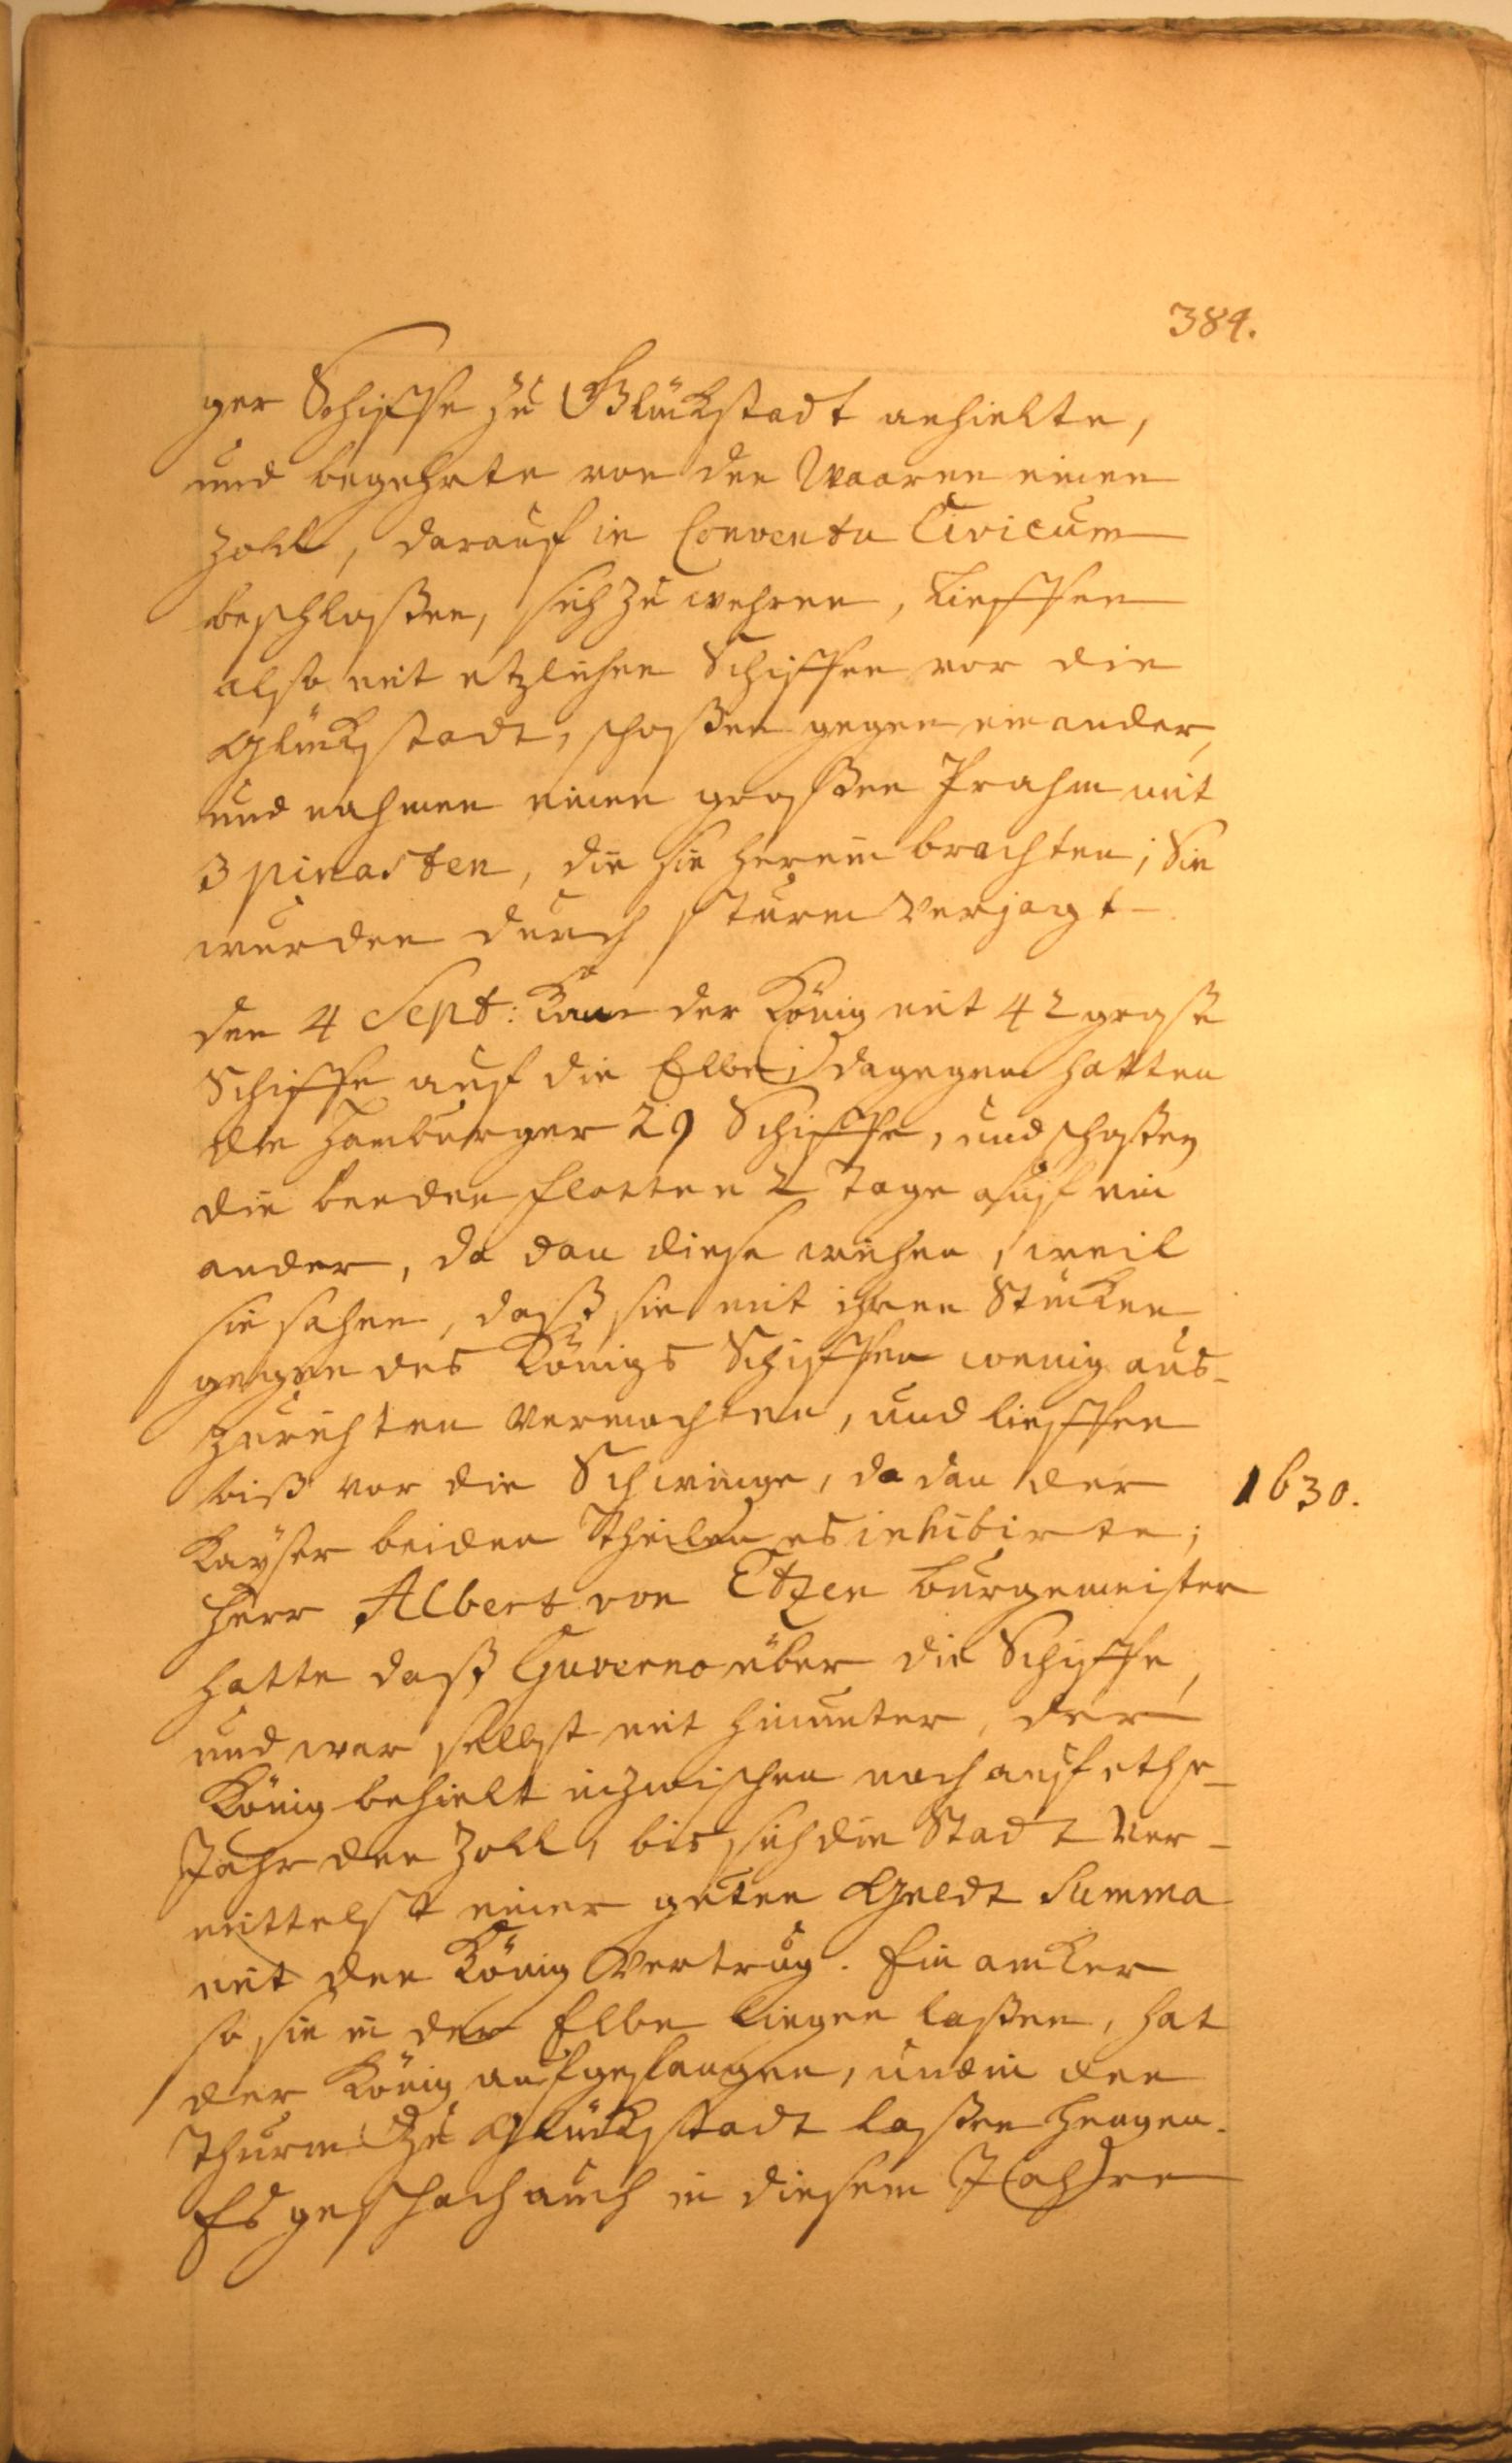 384.
ger Schiffe zu Glückstadt anhielte,
und begehrte von den Waaren einen
Zoll, darauf in Conventu Civicum
beschloßen, sich zu wehren, Lieffen
also mit etzlichen Schiffen vor die
Glückstadt, schoßen gegen einander,
und nahmen einen großen Prahm mit
3 pinasten, die sie herein brachten; Sie
wurden durch sturm verjagt
den 4 Sept: Kam der König mit 42 große
Schiffe auf die Elbe; dagegen hatten
die Hamburger 29 Schiffe, und schoßen
die beeden flotten 2 Tage auf ein
ander, da dan diese wichen, weil
sie sahen, daß sie mit ihren Stücken
gegen des Königs Schiffen wenig aus-
zurichten vermochten, und lieffen
biß vor die Schwinge, da dan der
1630.
Kayser beiden Theilen es inhibirte;
Herr Albert von Etzen bürgemeister
hatte daß Guverno über die Schiffe,
und war selbst mit hinunter, der
König behielt inzwischen noch auf ethe-
Jahr den Zoll, bis sich die Stadt ver-
mittelst einer guten Geldt Summa
mit den König vertrug. Ein anker
so sie in der Elbe liegen laßen, hat
der König aufgefangen, und in den
Thurm zu Glückstadt laßen hengen.
Es geschach auch in diesem Jahren